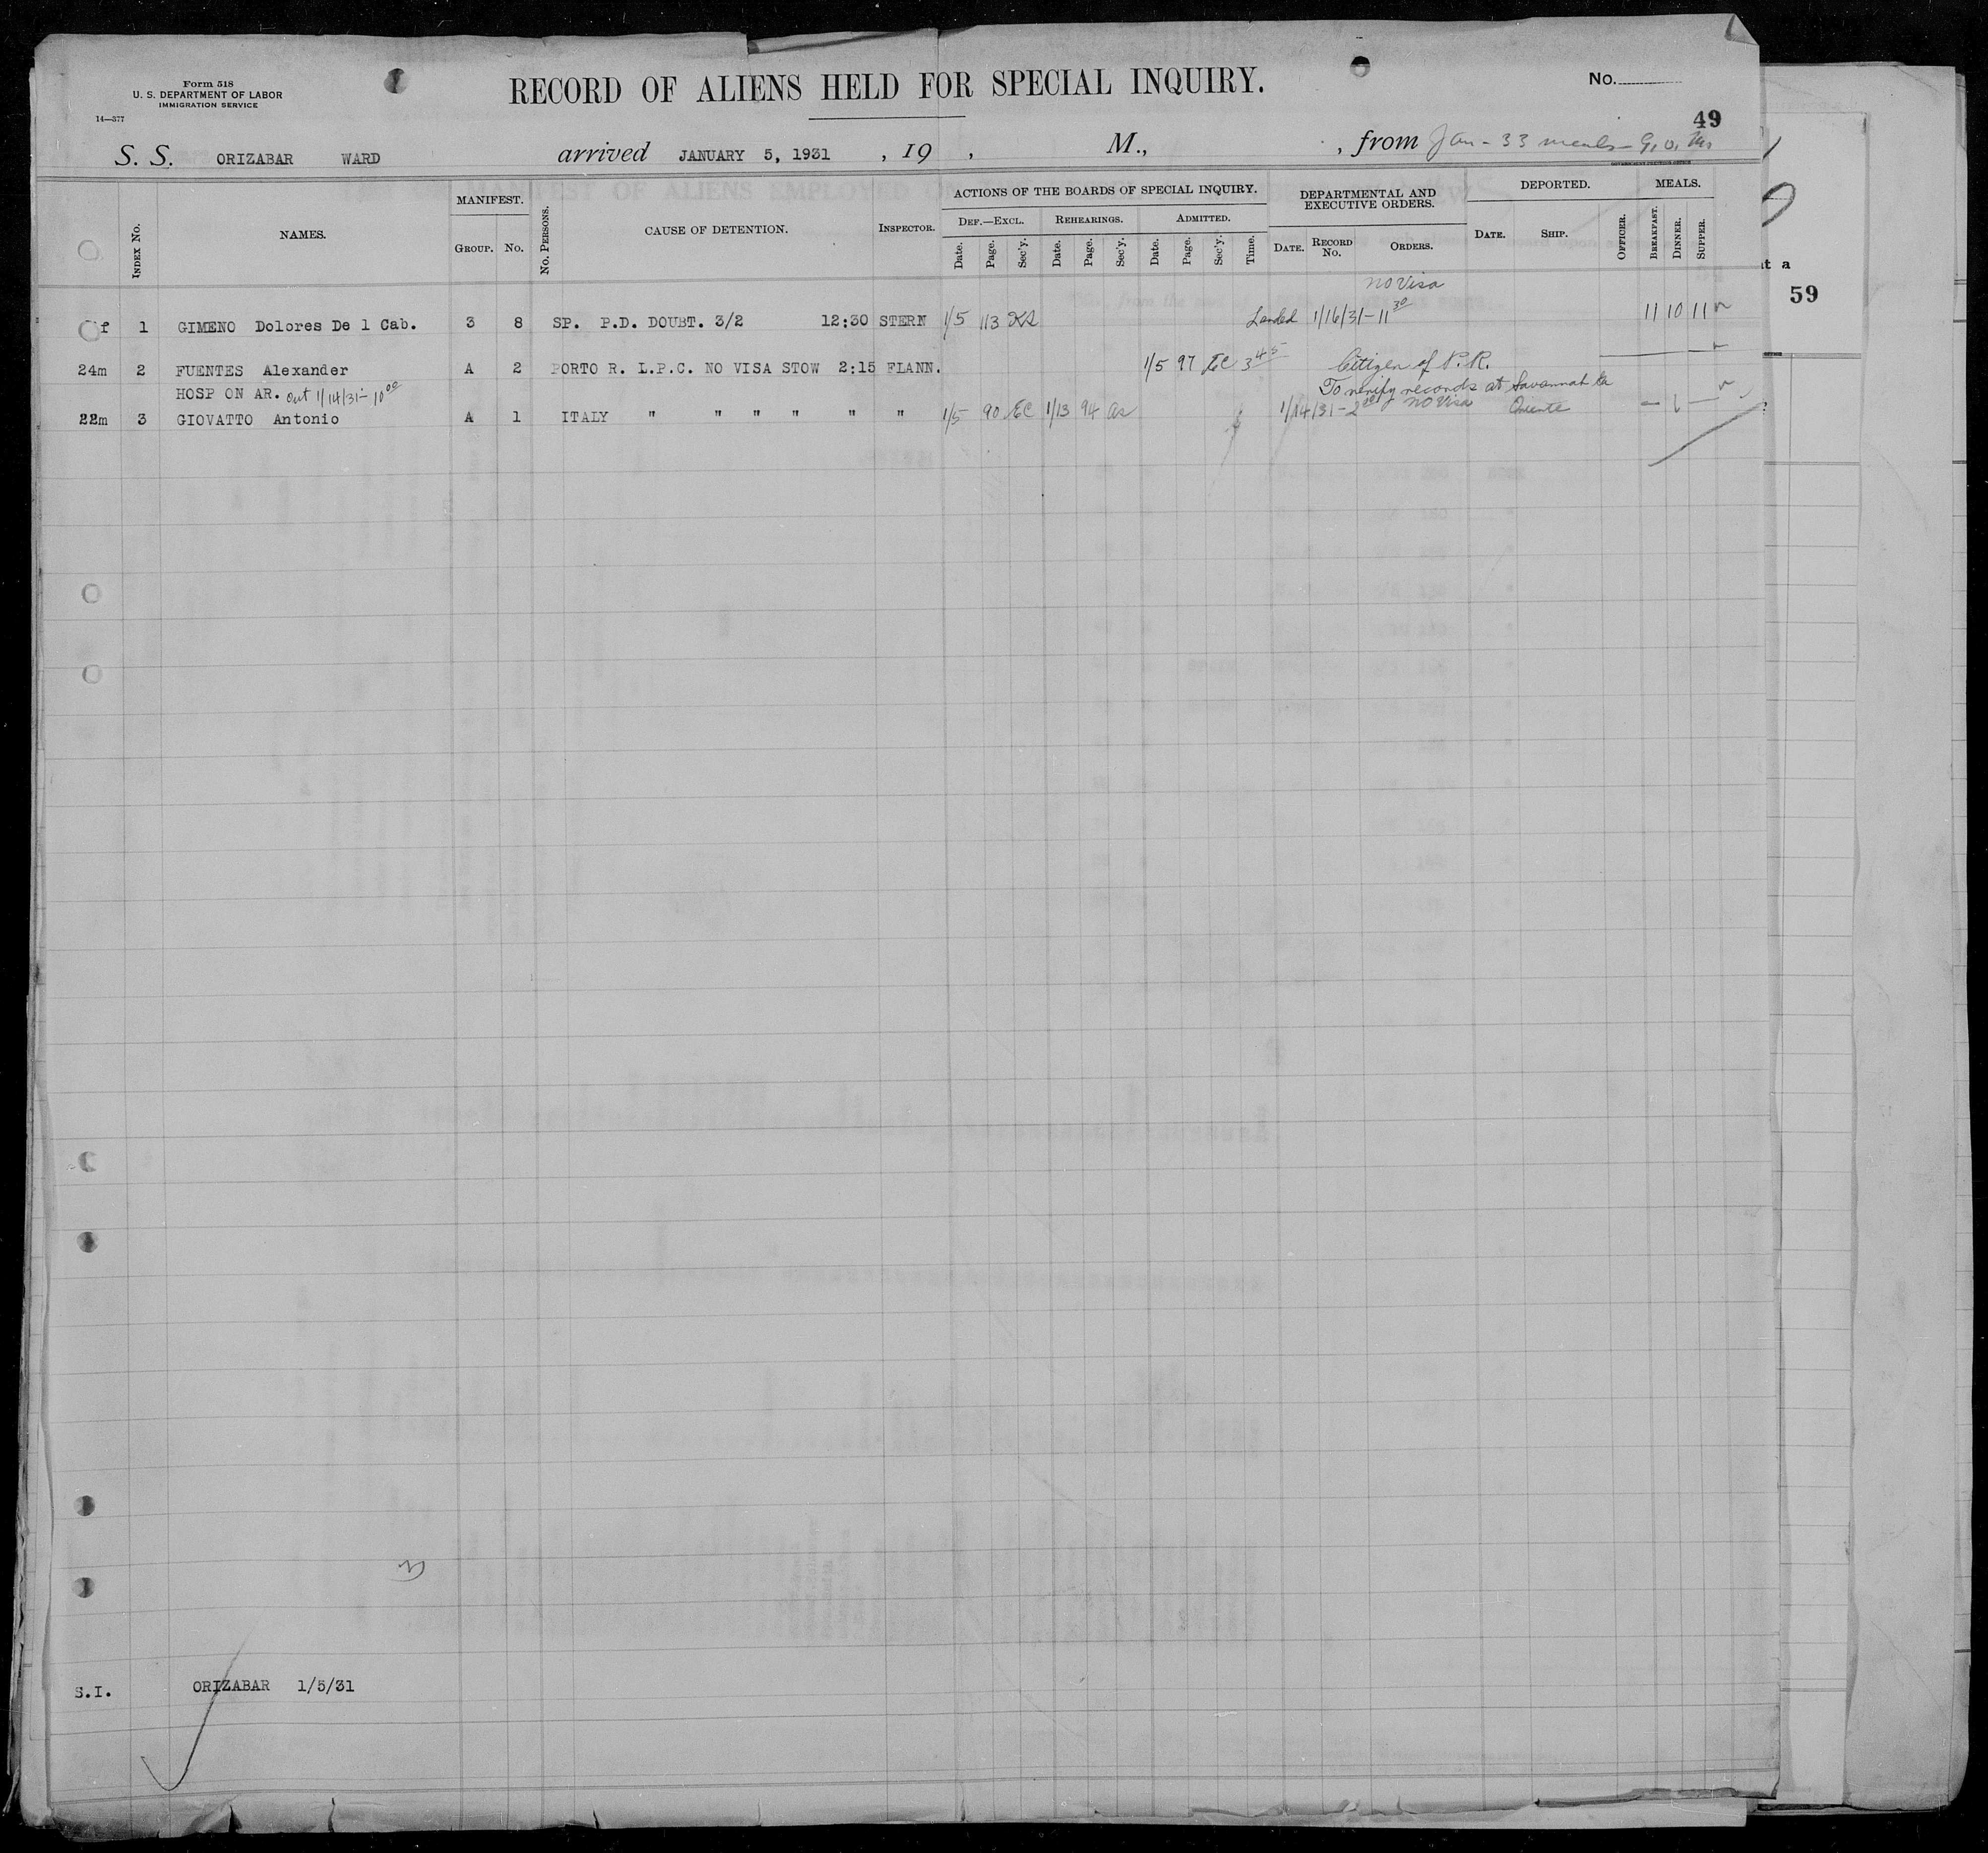 Form 518
U. S. DEPARTMENT OF LABOR
IMMIGRATION SERVICE
14—377
RECORD OF ALIENS HELD FOR SPECIAL INQUIRY.
No.
49
S. S. ORIZABAR WARD arrived JANUARY 5, 1931 , 19 , M., , from Jan - 33 meals - G. O.
GOVERNMENT PRINTING OFFICE
INDEX No. NAMES. MANIFEST. GROUP. No. No. PERSONS. CAUSE OF DETENTION. INSPECTOR. ACTIONS OF THE BOARDS OF SPECIAL INQUIRY. DEF.—EXCL. Date. Page. Sec'y. REHEARINGS. Date. Page. Sec'y. ADMITTED. Date. Page. Sec'y. Time. DEPARTMENTAL AND EXECUTIVE ORDERS. DATE. RECORD No. ORDERS. DEPORTED. DATE. SHIP. OFFICER. MEALS. BREAKFAST. DINNER. SUPPER.
no Visa
f 1 GIMENO Dolores De l Cab. 3 8 SP. P.D. DOUBT. 3/2 12:30 STERN 1/5 113 Landed 1/16/31-11 30 11 10 11
24m 2 FUENTES Alexander A 2 PORTO R. L.P.C. NO VISA STOW 2:15 FLANN. 1/5 97 EC 3 45 Citizen of P.R.
HOSP ON AR. out 1/14/31- 10 00 To verify records at Savannah Ga
22m 3 GIOVATTO Antonio A 1 ITALY " " " " " " 1/5 90 EC 1/13 94 as 1/14/31-2 no Visa Oriente — 1 —
t a
59
S.I. ORIZABAR 1/5/31